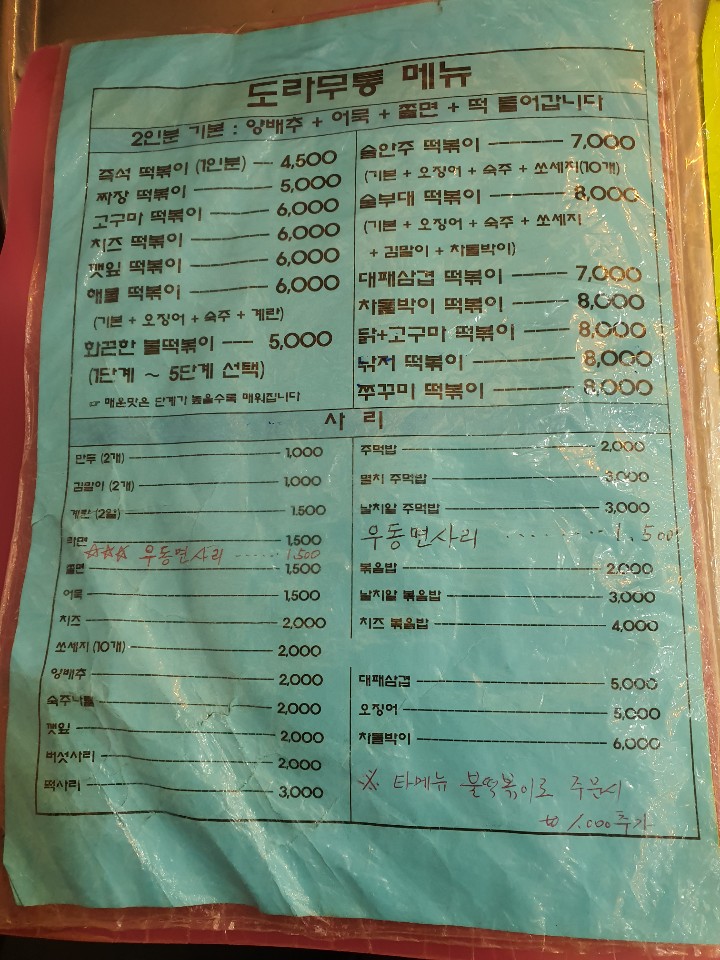 도라무통 메뉴
2인분 기본 : 양배추 + 어묵 + 쫄면 + 떡 들어갑니다
즉석 떡볶이 (1인분) 4,500
짜장 떡볶이 5,000
고구마 떡볶이 6,000
치즈 떡볶이 6,000
깻잎 떡볶이 6,000
해물 떡볶이 6,000
(기본 + 오징어 + 숙주 + 계란)
화끈한 불떡볶이 5,000
(1단계 ~ 5단계 선택)
☞ 매운맛은 단계가 높을수록 매워집니다
술안주 떡볶이 7,000
(기본 + 오징어 + 숙주 + 쏘세지(10개)
술부대 떡볶이 8,000
(기본 + 오징어 + 숙주 + 쏘세지
+ 김말이 + 차돌박이)
대패삼겹 떡볶이 7,000
차돌박이 떡볶이 8,000
닭+고구마 떡볶이 8,000
낚저 떡볶이 8,000
쭈꾸미 떡볶이 8,000
사 리
만두 (2개) 1,000
김말이 (2개) 1,000
계란 (2알) 1,500
라면 1,500
☆☆☆ 우동면사리 ...... 1.500
쫄면 1,500
어묵 1,500
치즈 2,000
쏘세지 (10개) 2,000
양배추 2,000
숙주나물 2,000
깻잎 2,000
버섯사리 2,000
떡사리 3,000
주먹밥 2,000
멸치 주먹밥 3,000
날치알 주먹밥 3,000
우동면사리 ......... 1.500
볶음밥 2,000
날치알 볶음밥 3,000
치즈 볶음밥 4,000
대패삼겹 5,000
오징어 5,000
차돌박이 6,000
※ 타메뉴 불떡볶이로 주문시
₩ 1.000 추가